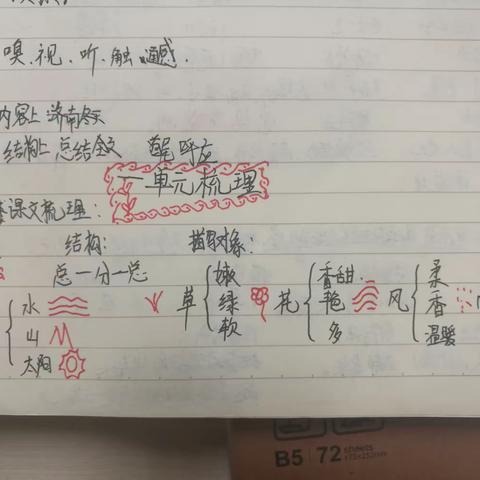 嗅、视、听、触、通感.
内容上 济南冬天
结构上 总结全文 首尾呼应
一单元梳理
课文梳理:
结构: 描写对象:
总一分一总
水 山 太阳
草 嫩 绿 软
花 香甜 艳 多
风 柔 香 温暖
B5 72 sheets